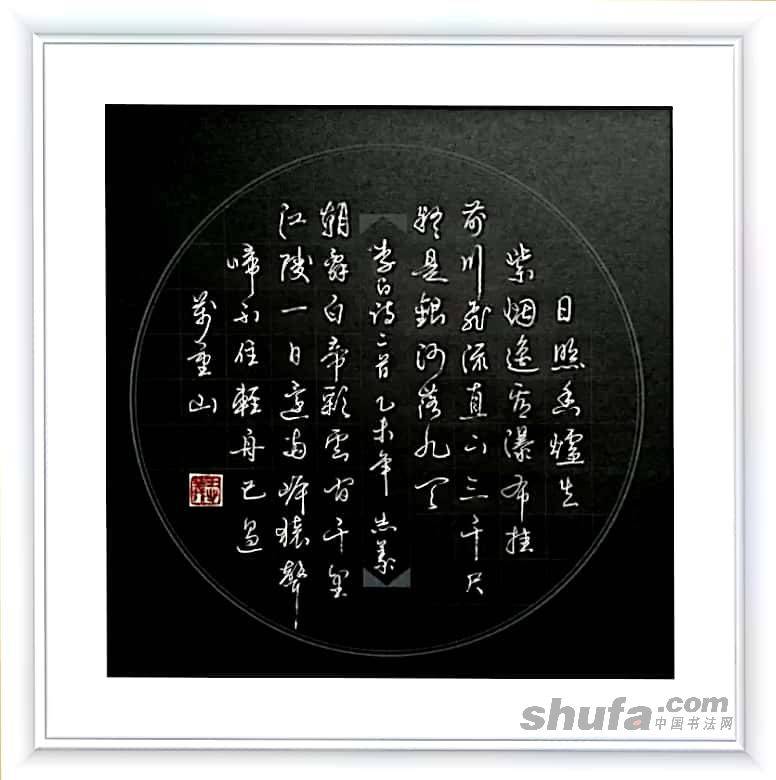 日照香爐生
紫烟遥看瀑布挂
前川飛流直下三千尺
疑是銀河落九天
李白詩二首乙未年忠義
朝辞白帝彩雲間千里
江陵一日還两岸猿聲
啼不住輕舟已過
萬重山
shufa.com
中国书法网